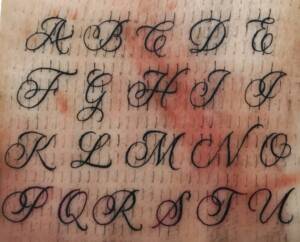 A B C D E
F G H I J
K L M N O
P Q R S T U